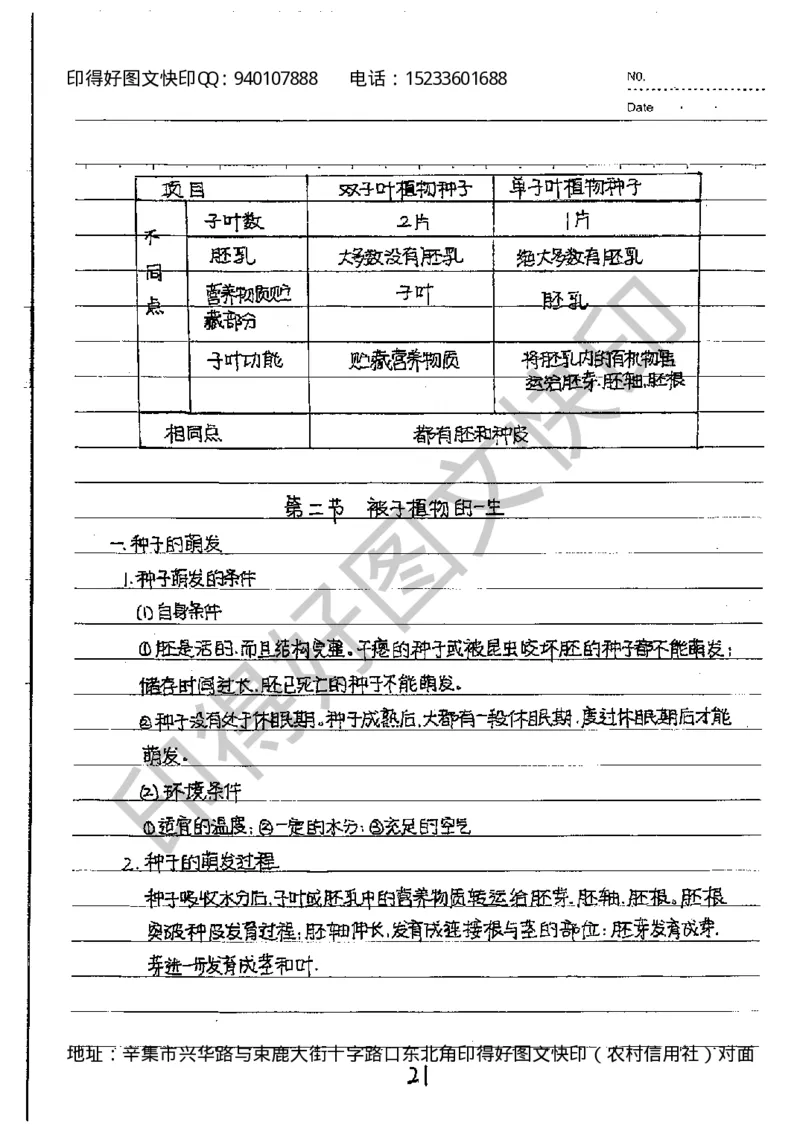 印得好图文快印QQ：940107888 电话：15233601688
NO.
Date
项目 双子叶植物种子 单子叶植物种子
不同点
子叶数 2片 1片
胚乳 大多数没有胚乳 绝大多数有胚乳
营养物质贮 子叶 胚乳
藏部分
子叶功能 贮藏营养物质 将胚乳内的有机物
运给胚芽.胚轴.胚根
相同点 都有胚和种皮
第二节 被子植物的一生
一.种子的萌发
1.种子萌发的条件
(1)自身条件
①胚是活的.而且结构完整。干瘪的种子或被昆虫咬坏胚的种子都不能萌发；
储存时间过长.胚已死亡的种子不能萌发。
②种子没有处于休眠期。种子成熟后.大都有一段休眠期.度过休眠期后才能
萌发。
(2)环境条件
①适宜的温度；②一定的水分；③充足的空气
2.种子的萌发过程
种子吸收水分后.子叶或胚乳中的营养物质转运给胚芽.胚轴.胚根。胚根
突破种皮发育过程；胚轴伸长,发育成连接根与茎的部位；胚芽发育成芽.
芽进一步发育成茎和叶.
地址：辛集市兴华路与束鹿大街十字路口东北角印得好图文快印（农村信用社）对面
21
印得好图文快印